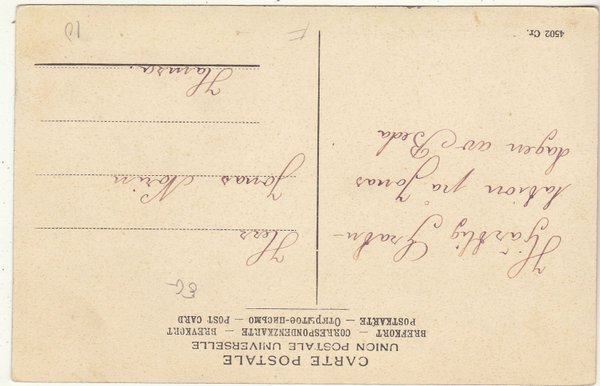 CARTE POSTALE
UNION POSTALE UNIVERSELLE
BREFKORT — CORRESPONDENZKARTE — BREVKORT
POSTKARTE — Открытое-письмо — POST CARD
EG-
Hjärtlig Gratu-
lation på Jonas
dagen av Beda
Herr
Jonas Norin
Hamra.
4502 Cr.
F
10